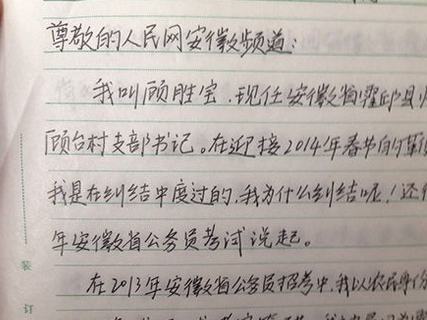 尊敬的人民网安徽频道:
我叫顾胜宝.现任安徽省霍邱县
顾台村支部书记。在迎接2014年春节的
我是在纠结中度过的,我为什么纠结呢!还
年安徽省公务员考试说起。
在2013年安徽省公务员招考中,我以农民身份
装订